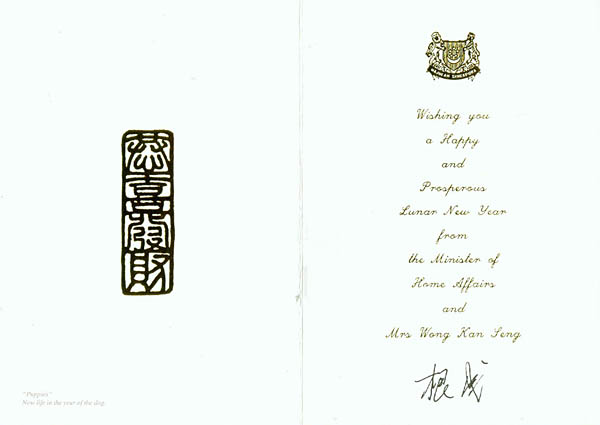 恭喜發財
"Puppies"
New life in the year of the dog.
MAJULAH SINGAPURA
Wishing you
a Happy
and
Prosperous
Lunar New Year
from
the Minister of
Home Affairs
and
Mrs Wong Kan Seng
根成